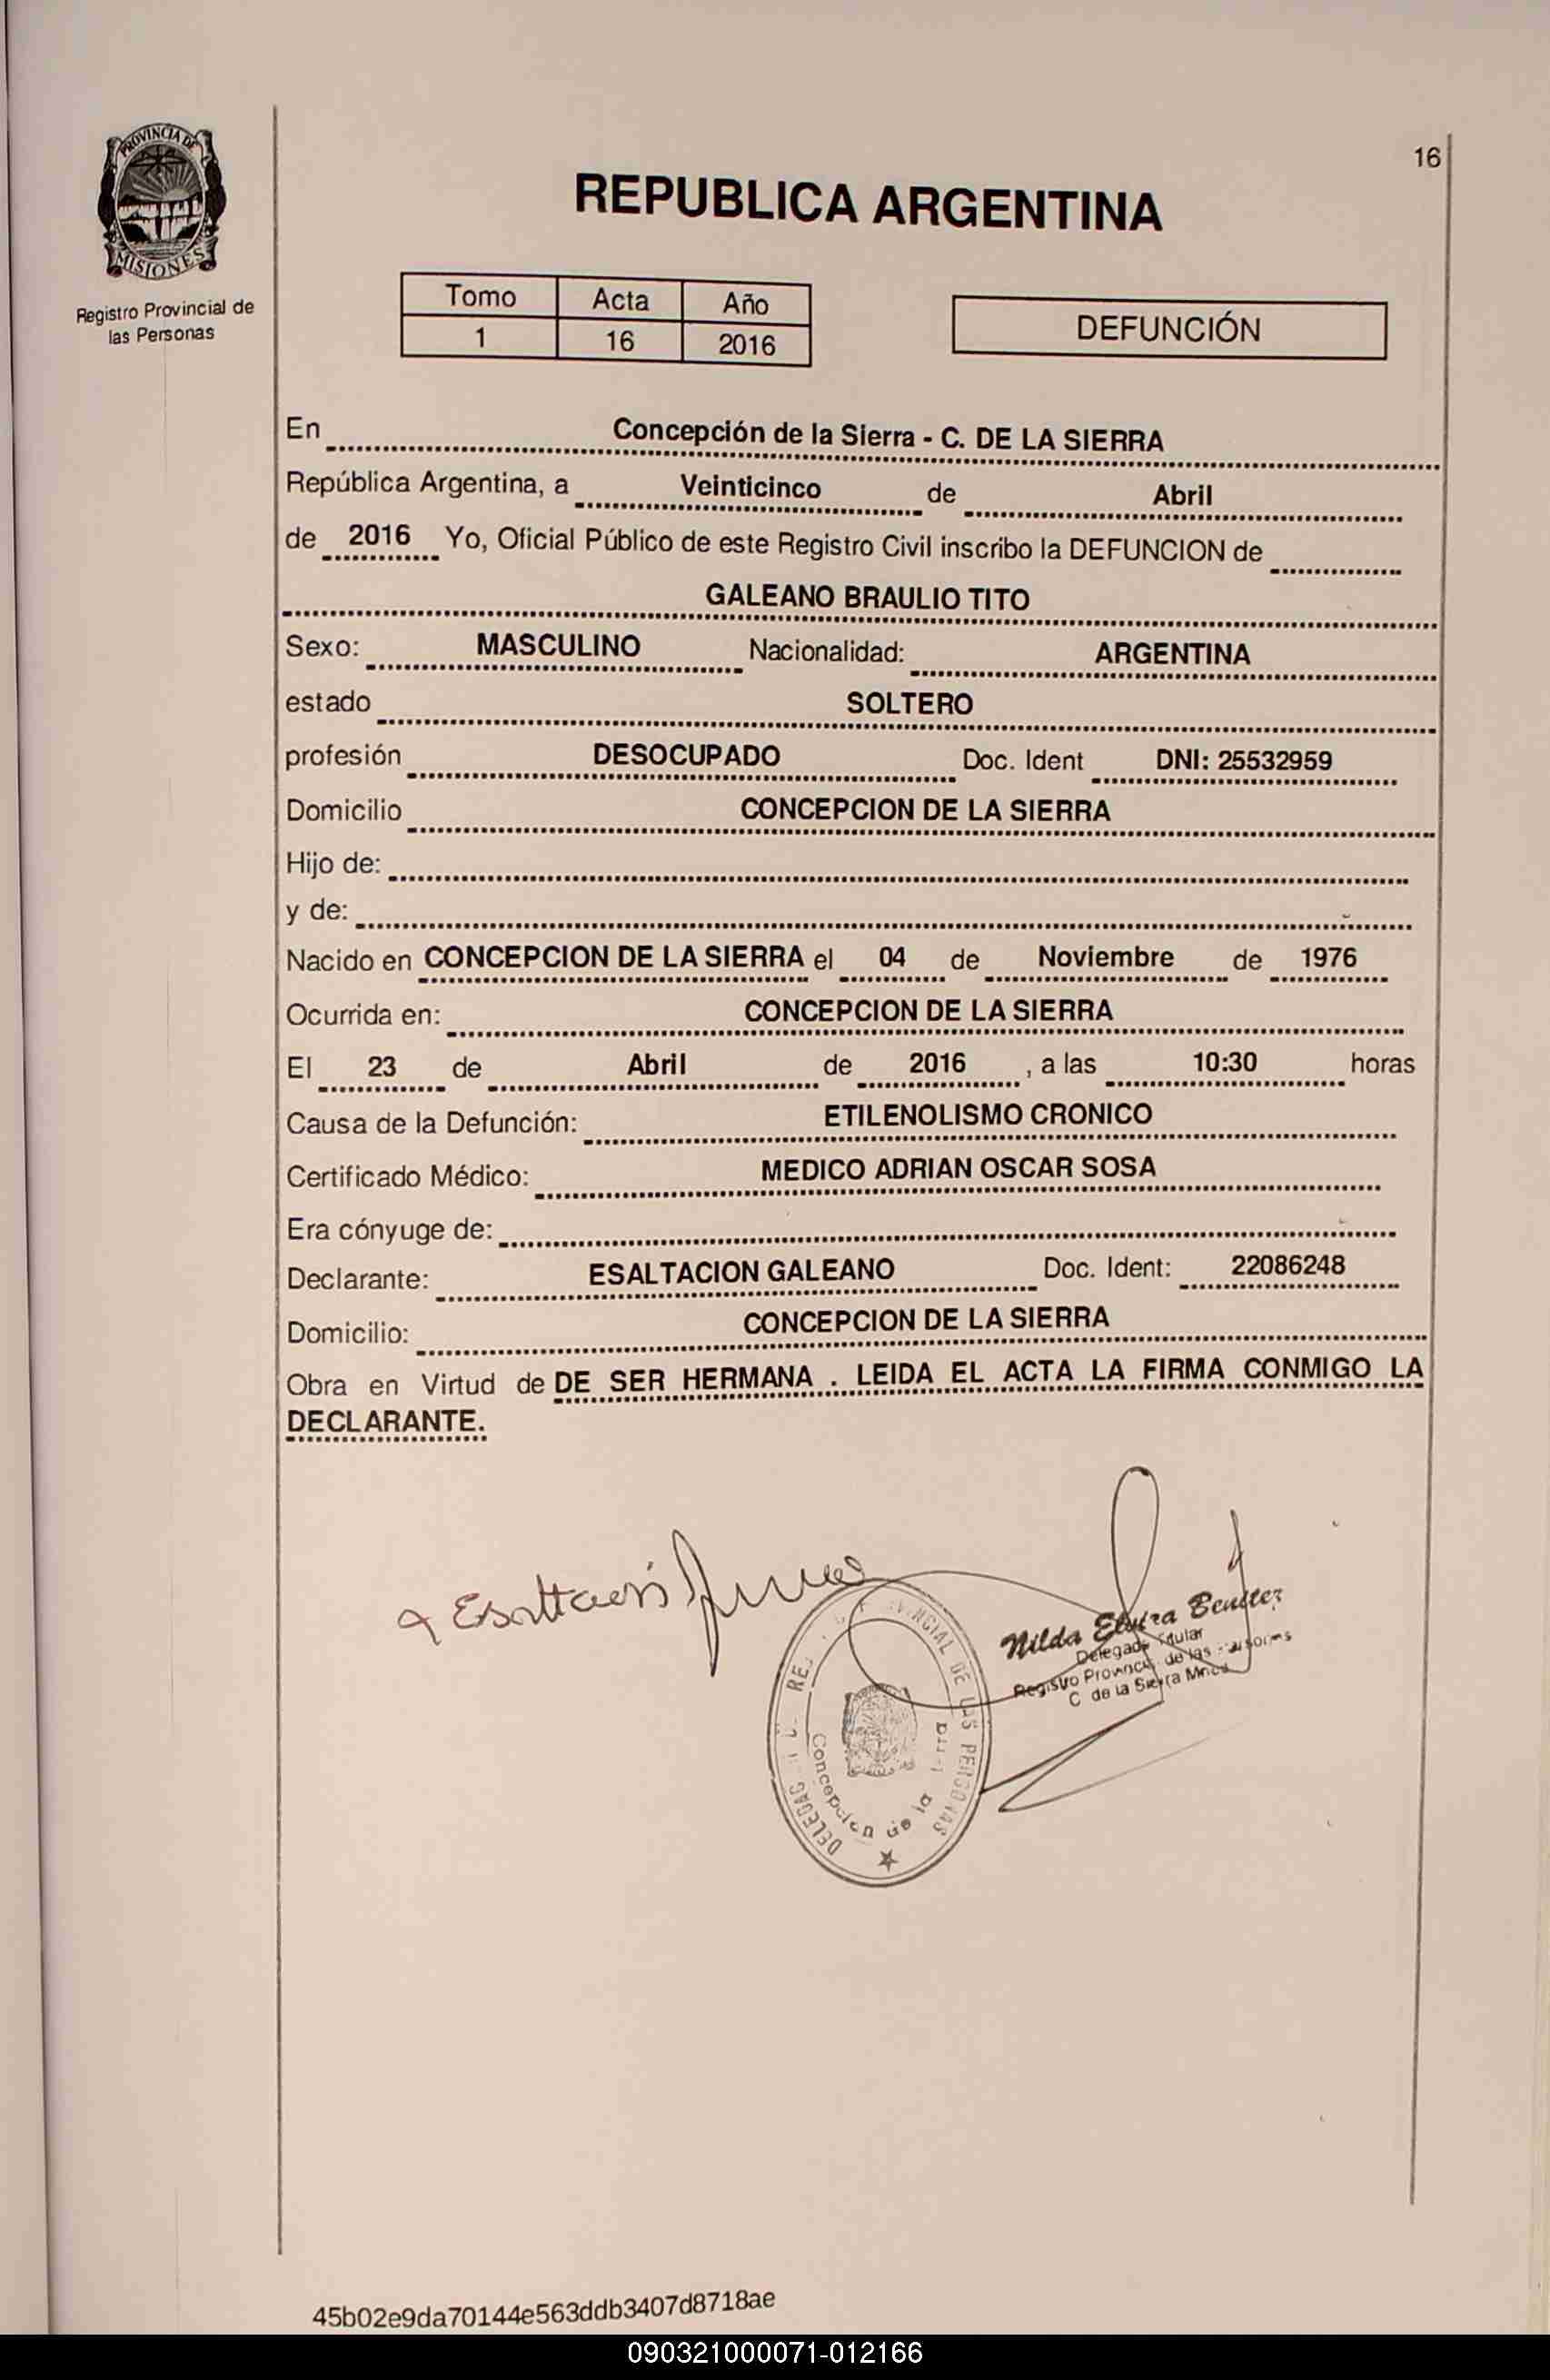 PROVINCIA DE
MISIONES
Registro Provincial de
las Personas
16
REPUBLICA ARGENTINA
Tomo Acta Año
1 16 2016
DEFUNCIÓN
En Concepción de la Sierra - C. DE LA SIERRA
República Argentina, a Veinticinco de Abril
de 2016 Yo, Oficial Público de este Registro Civil inscribo la DEFUNCION de
GALEANO BRAULIO TITO
Sexo: MASCULINO Nacionalidad: ARGENTINA
estado SOLTERO
profesión DESOCUPADO Doc. Ident DNI: 25532959
Domicilio CONCEPCION DE LA SIERRA
Hijo de:
y de:
Nacido en CONCEPCION DE LA SIERRA el 04 de Noviembre de 1976
Ocurrida en: CONCEPCION DE LA SIERRA
El 23 de Abril de 2016 , a las 10:30 horas
Causa de la Defunción: ETILENOLISMO CRONICO
Certificado Médico: MEDICO ADRIAN OSCAR SOSA
Era cónyuge de:
Declarante: ESALTACION GALEANO Doc. Ident: 22086248
Domicilio: CONCEPCION DE LA SIERRA
Obra en Virtud de DE SER HERMANA . LEIDA EL ACTA LA FIRMA CONMIGO LA
DECLARANTE.
Nilda Elvira Benitez
Delegada Titular
Registro Provincial de las Personas
C de la Sierra
PROVINCIAL DE LAS PERSONAS
Concepción de la
45b02e9da70144e563ddb3407d8718ae
090321000071-012166